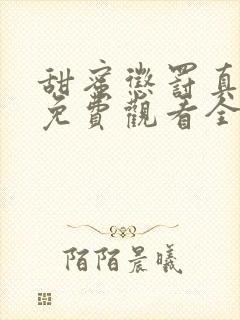 甜蜜懲罰真
免費觀看全
陌陌晨曦